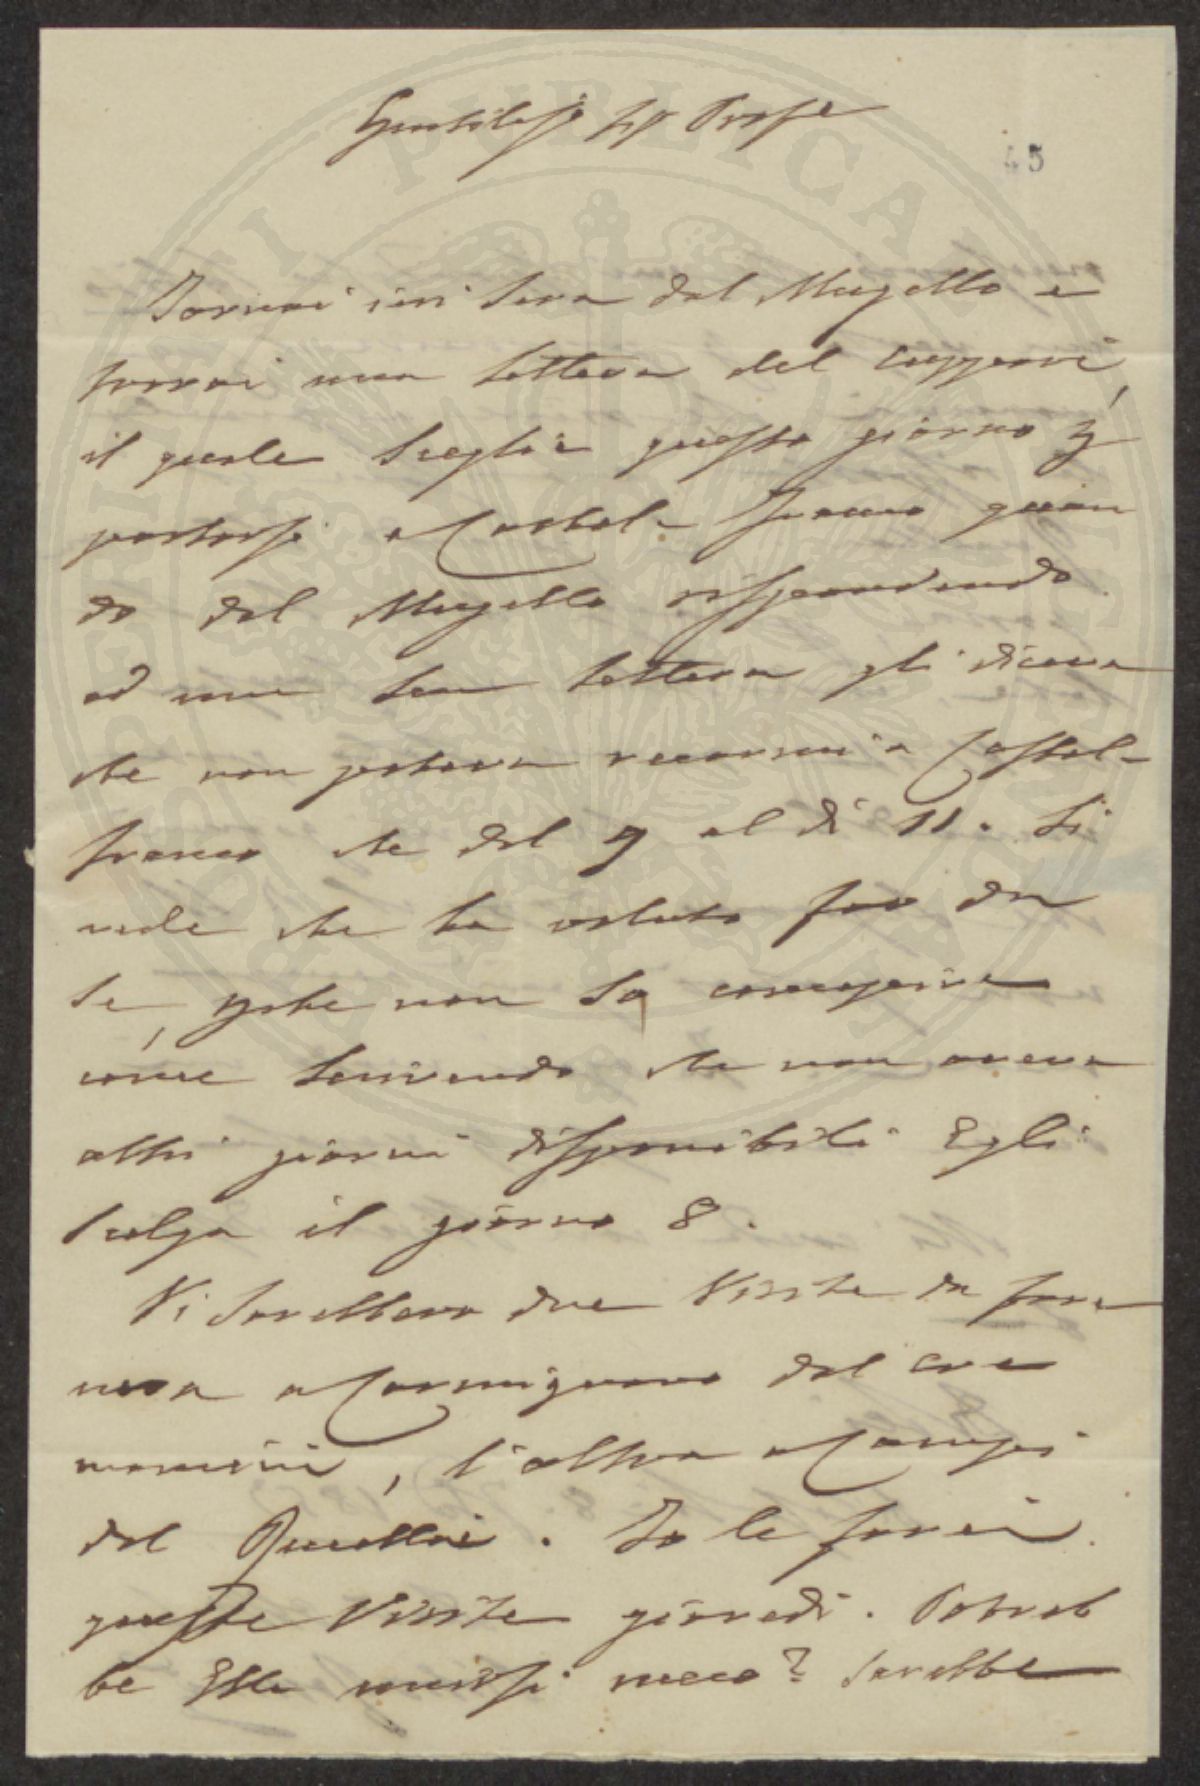 Gentilesso Sigr Profe
45
Tornai ieri sera dal Mugello e
trovai una lettera del Cuppari,
il quale sceglie questo giorno p
portarsi a Castel-franco quan
do dal Mugello rispondendo
ad una sua lettera gli diceva
che non poteva recarmi a Castel-
franco che dal 9 al dì 11. Si
vede che ha voluto far da
se, pche non so concepire
come scrivendo che non aveva
altri giorni disponibili Egli
scelga il giorno 8.
Vi sarebbero due Visite da fare
una a Carmignano dal Cre
moncini, l'altra a Campi
dal Rucellai. Io le farei
queste Visite giovedì. Potreb
be Ella unirsi meco? Sarebbe